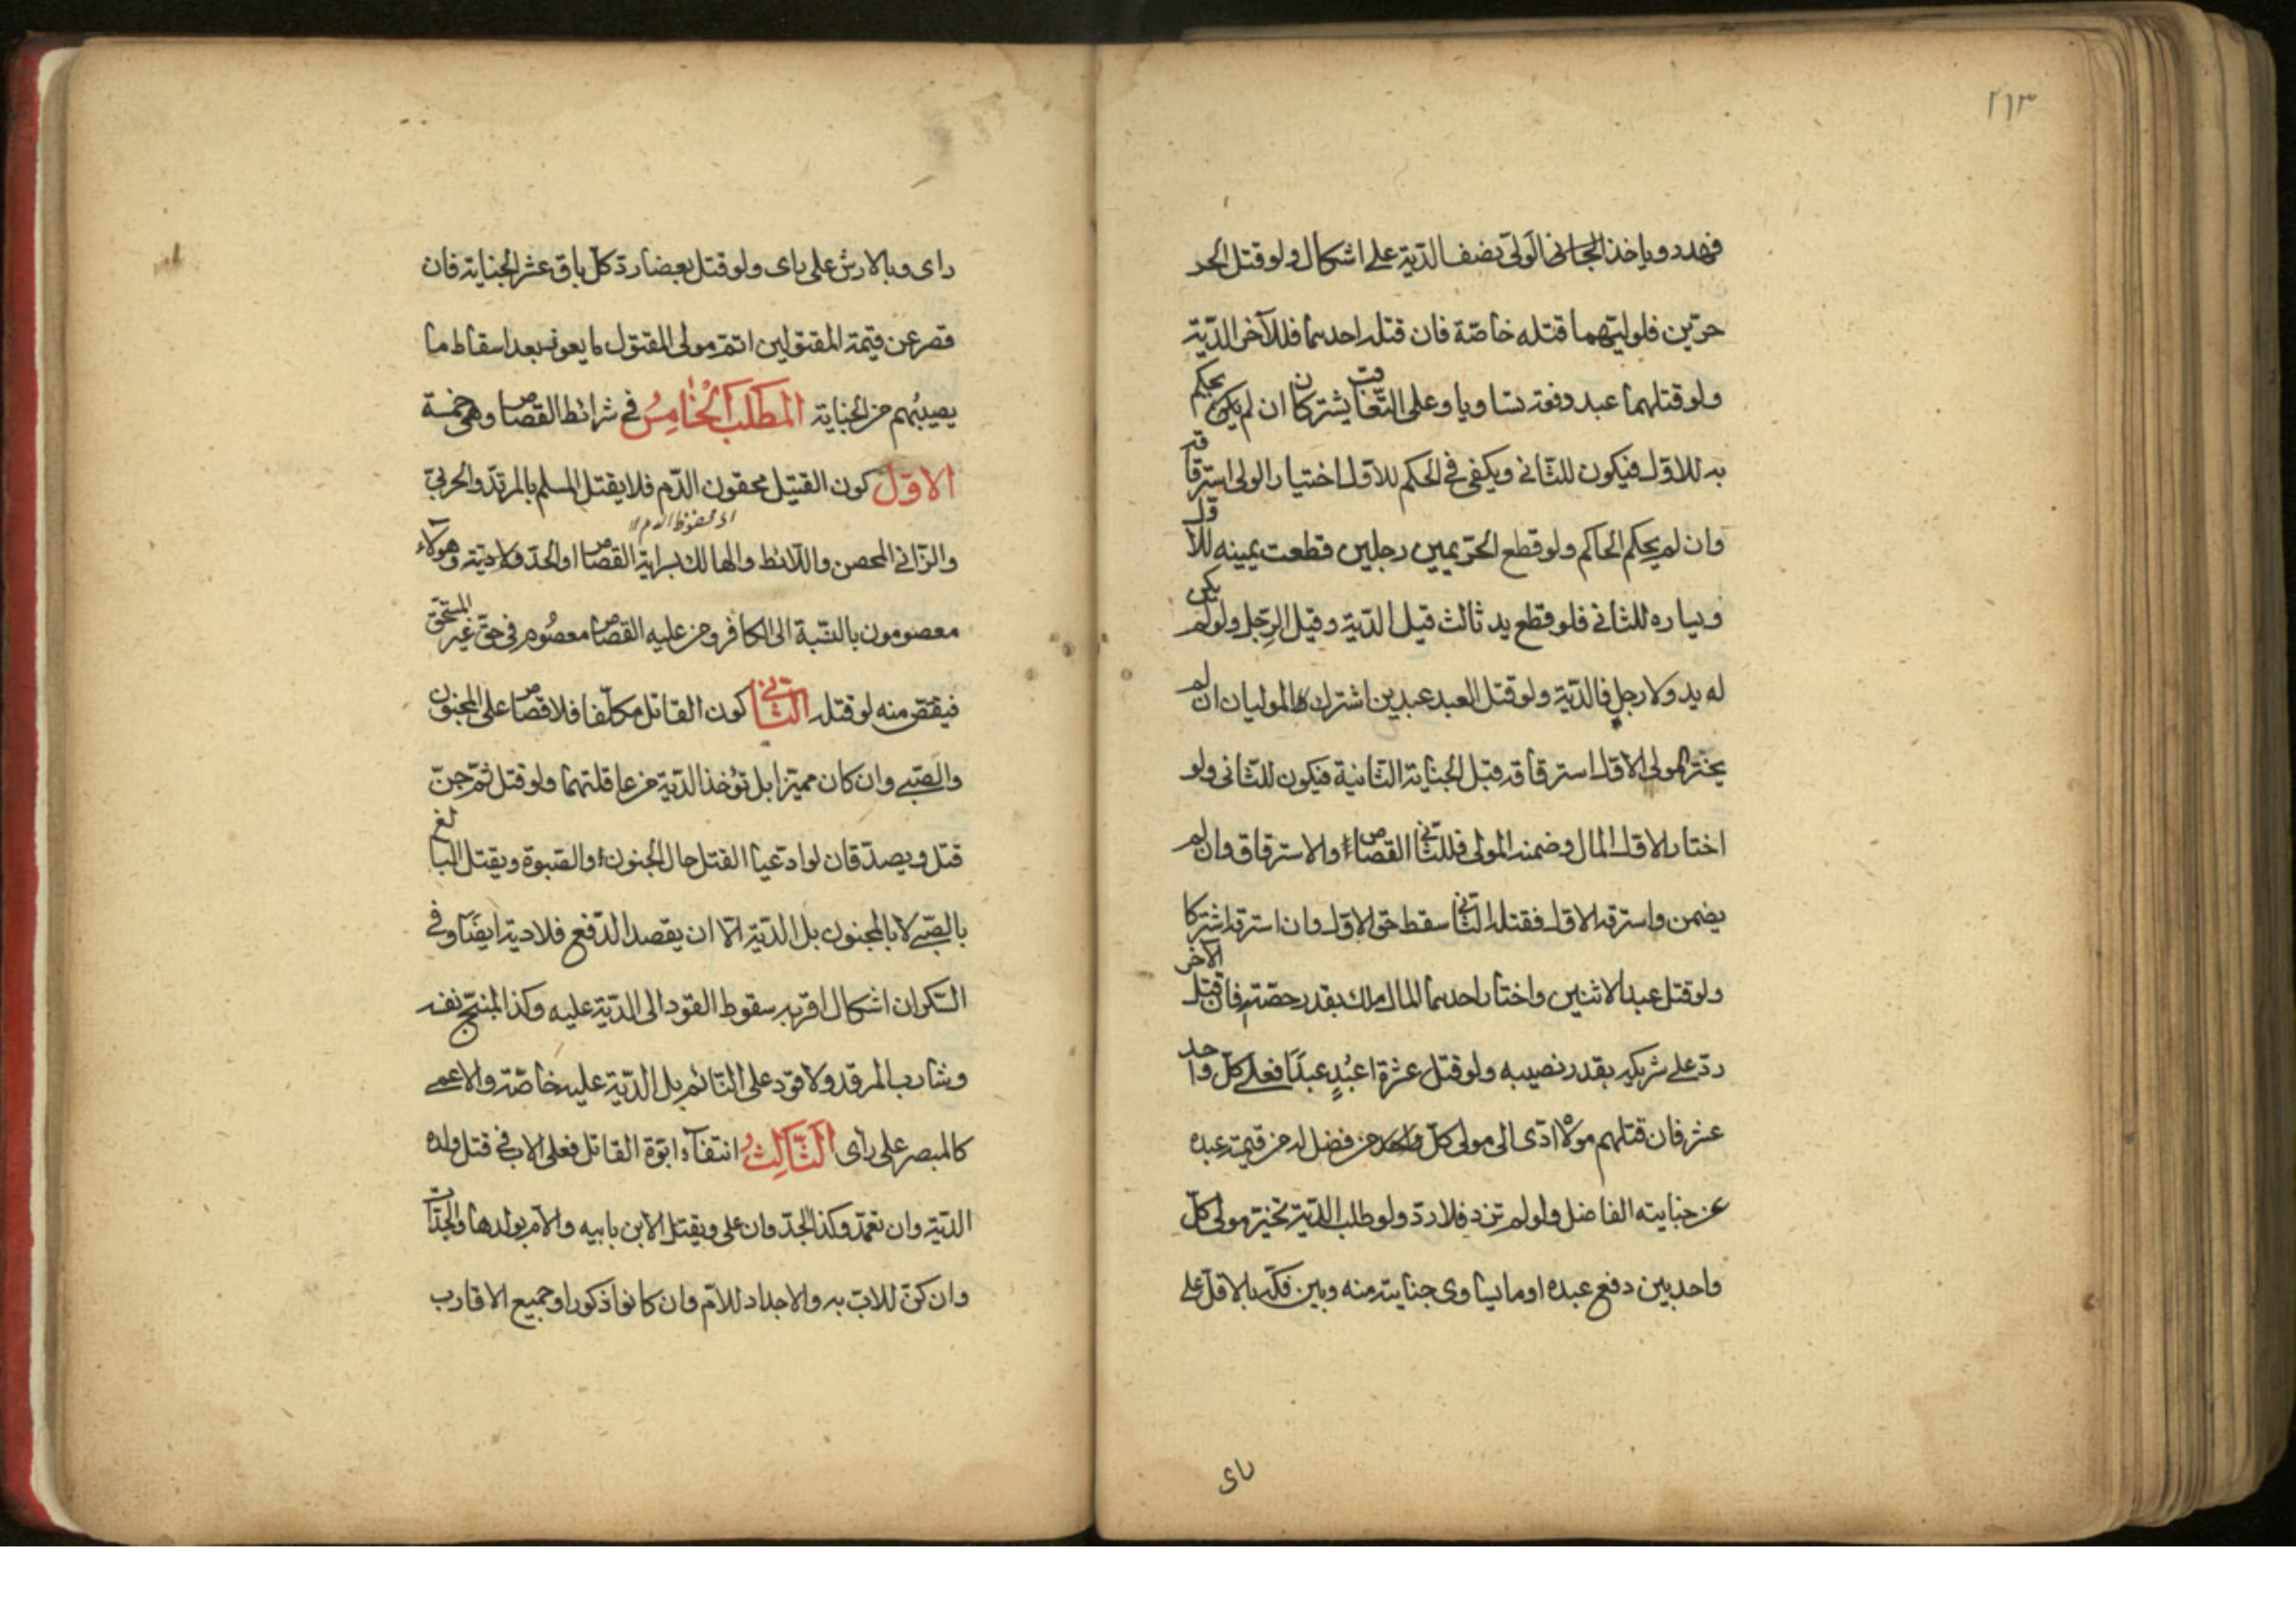 ٢٦٣
فهدر و ياخذ الجانى الولى نصف الدّية على اشكال ولو قتل الحر
حرّين فلوليّهما قتله خاصّة فان قتله احدهما فللآخر الدّية
ولو قتلهما عبد دفعة تساويا وعلى التّعاقب يشتركان ان لم يكن يحكم
به للاوّل فيكون للثّانى ويكفى فى الحكم للاوّل اختيار الولى استرقاقه
وان لم يحكم الحاكم ولو قطع الحرّ يمين رجلين قطعت يمينه للاوّل
ويساره للثانى فلو قطع يد ثالث قيل الدّية وقيل الرّجل ولو لم يكن
له يد ولا رجل فالدّية ولو قتل العبد عبدين اشترك الموليان ان لم
يختر مولى الاوّل استرقاقه قبل الجناية الثّانية فيكون للثّانى ولو
اختار الاوّل المال وضمنه المولى فللثّانى القصاص والاسترقاق وان لم
يضمن واسترقه الاوّل فقتله الثّانى سقط حقّ الاوّل وان استرقه اشتركا
ولو قتل عبدا لاثنين واختار احدهما المال ملك بقدر حصّته فان قتل الآخر
ردّ على شريكه بقدر نصيبه ولو قتل عشرة اعبُدٍ عبدًا فعلى كلّ واحد
عشر فان قتلهم مولاه ادّى الى مولى كلّ واحد من فضل له من قيمة عبده
عن جنايته الفاضل ولو لم تزد فلا ردّ ولو طلب الدّية تخيّر مولى كلّ
واحد بين دفع عبده او ما يساوى جنايته منه وبين فكّه بالاقلّ على
راى
راى وبالارش على راى ولو قتل بعضا ردّ كلّ باق عشر الجناية فان
قصر عن قيمة المقتولين اتمّ مولى المقتول ما يعوز بعد اسقاط ما
يصيبُهم من الجناية المَطلَبُ الْخامِسُ فى شرائط القصاص وهى خمسة
الاوّل كون القتيل محقون الدّم فلا يقتل المسلم بالمرتدّ والحربىّ
اى محفوظ الدم
والزّانى المحصن واللّائط والهالك بسراية القصاص او الحدّ ولا دية وهؤلاء
معصومون بالنّسبة الى الكافر ومن عليه القصاص معصُوم فى حقّ غير المستحقّ
فيقتص منه لو قتله الثّانى كون القاتل مكلّفا فلا قصاص على المجنون
والصّبى وان كان مميّزا بل تؤخذ الدّية من عاقلتهما ولو قتل ثمّ جنّ
قتل ويصدّقان لو ادّعيا القتل حال الجنون والصّبوة ويقتل البالغ
بالصّبى لا بالمجنون بل الدّية الّا ان يقصد الدّفع فلا دية ايضًا وفى
السّكران اشكال اقربه سقوط القود الى الدّية عليه وكذا المبنّج نفسه
وشارب المرقد ولا قود على النّائم بل الدّية عليه خاصّة والاعمى
كالمبصر على رأى الثّالِثُ انتفآء ابوّة القاتل فعلى الاب فى قتل ولده
الدّية وان تعمّد وكذا الجدّ وان على ويقتل الابن بابيه والامّ بولدها والجدّات
وان كنّ للاب به والاجداد للامّ وان كانوا ذكورا وجميع الاقارب